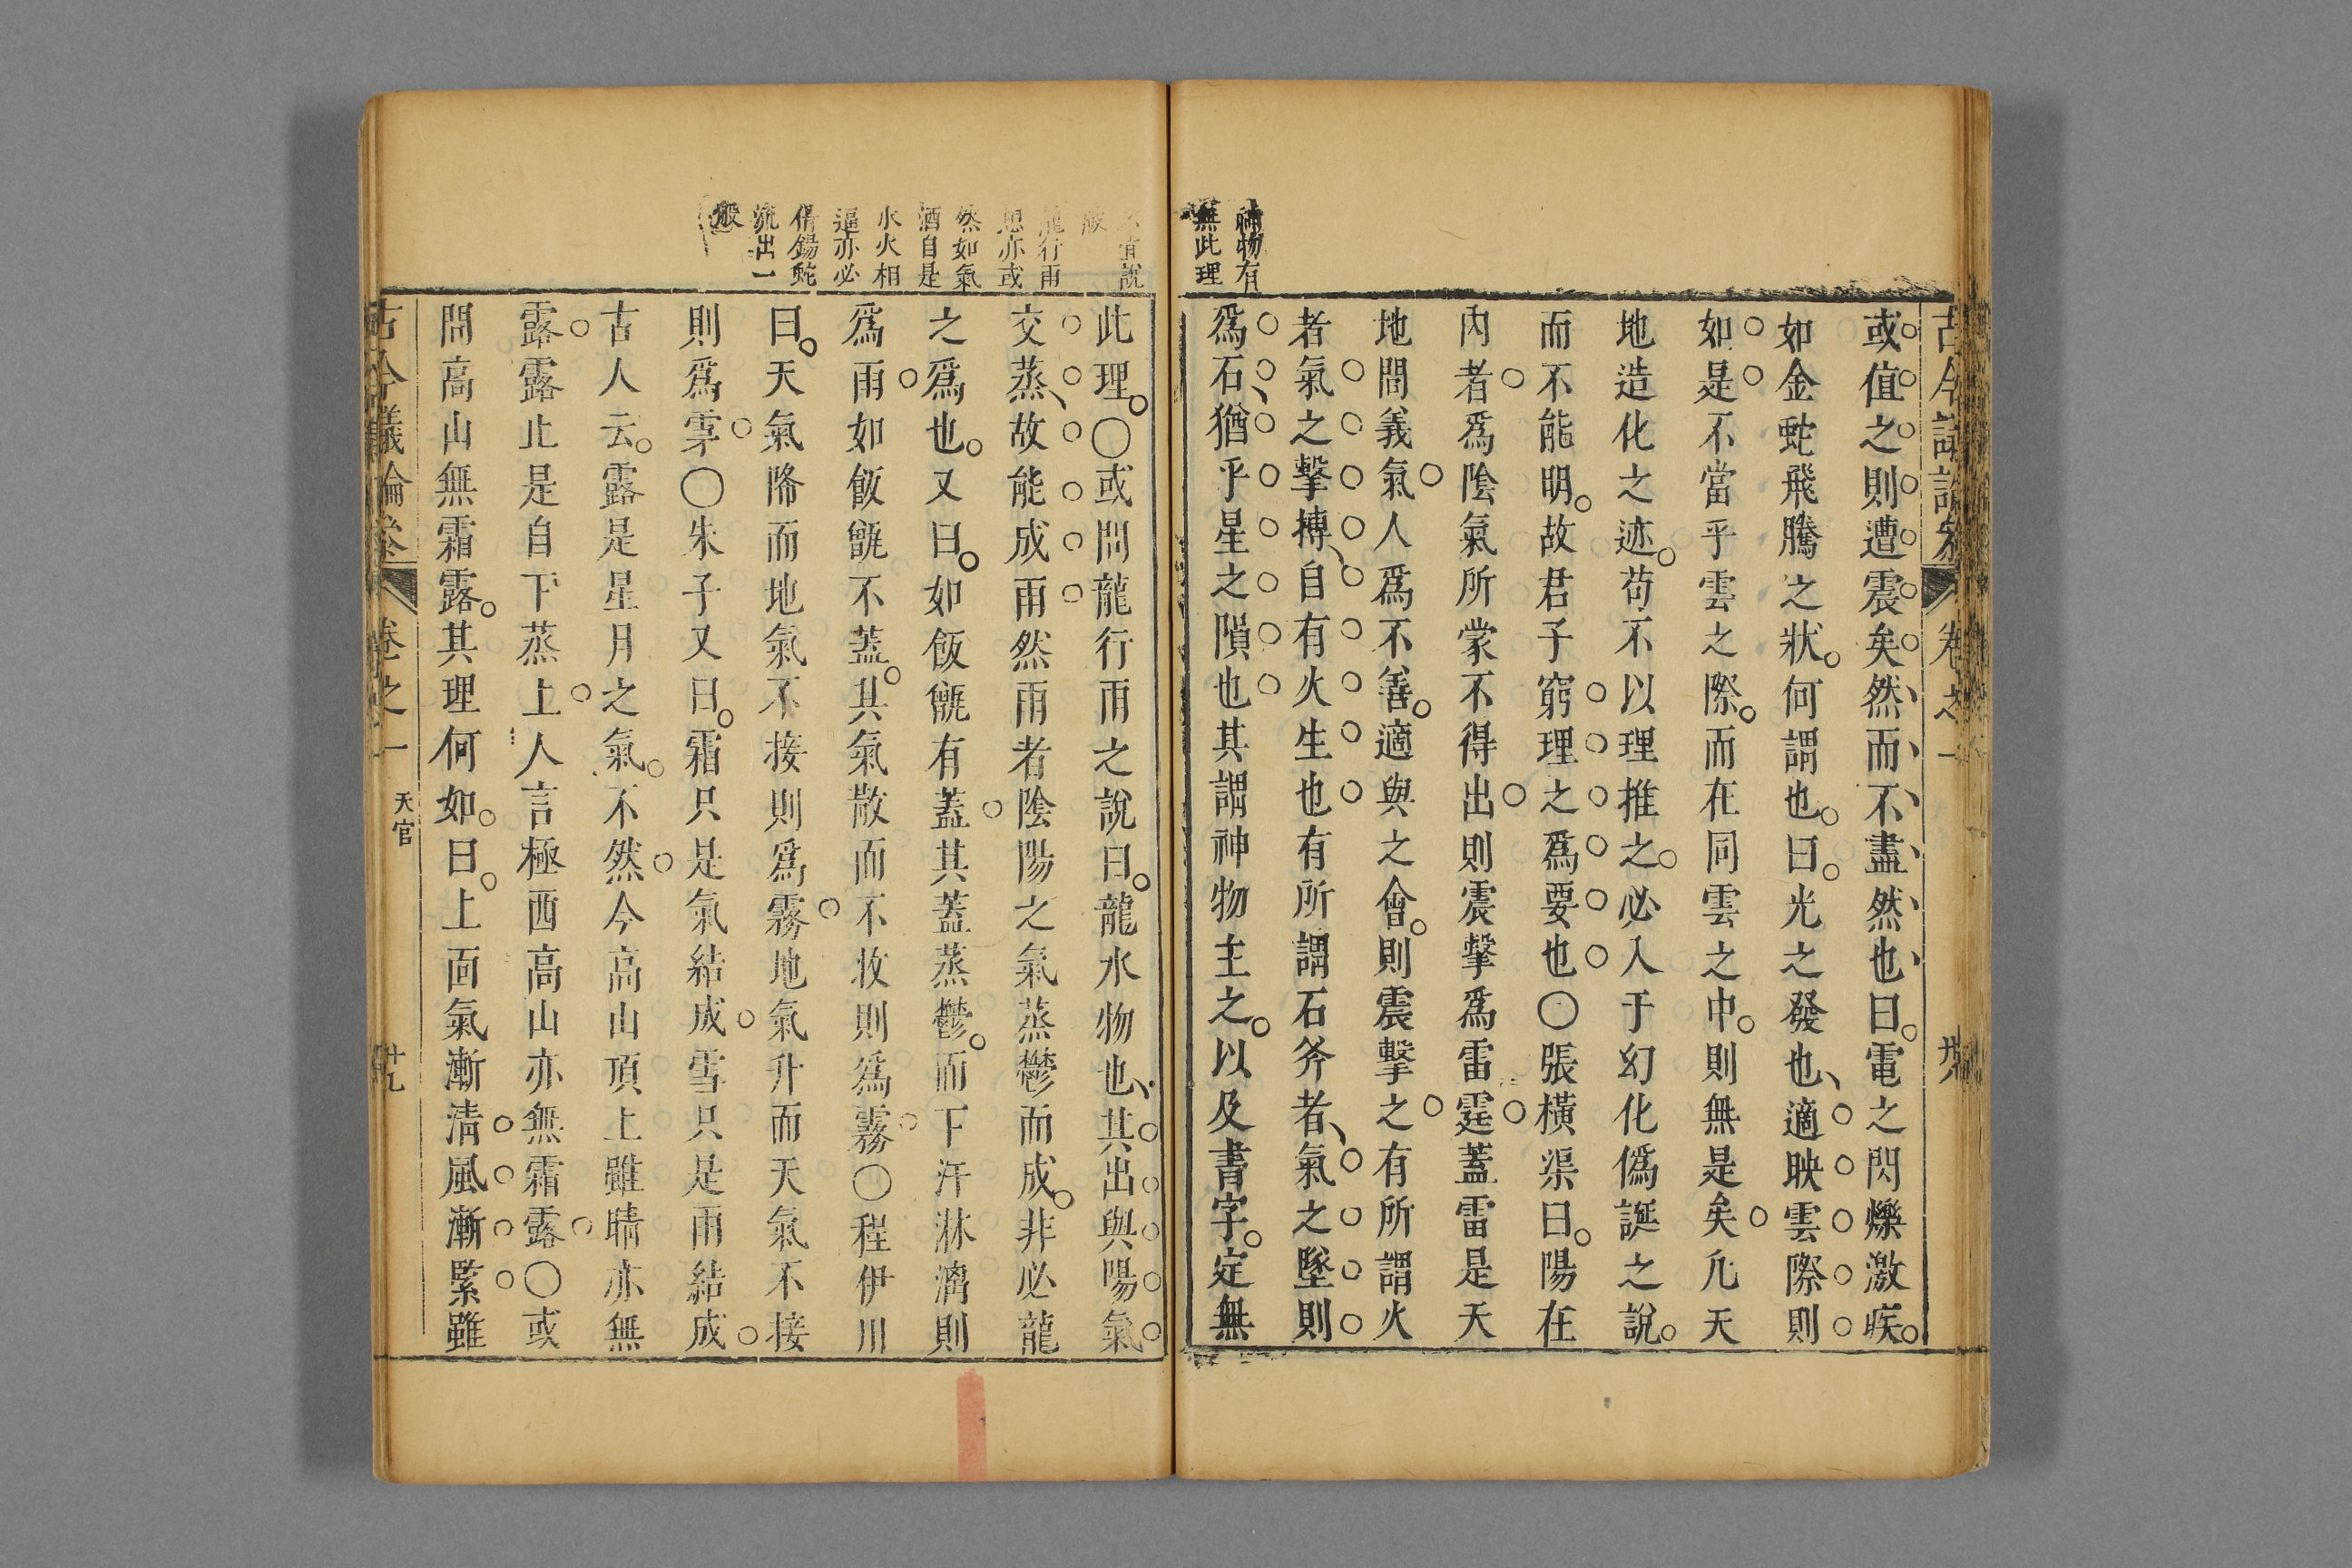 或值之則遭震矣然而不盡然也曰電之閃爍激疾
如金蛇飛騰之狀何謂也曰光之發也適映雲際則
如是不當乎雲之際而在同雲之中則無是矣凡天
地造化之迹苟不以理推之必入于幻化僞誕之說
而不能明故君子窮理之爲要也〇張橫渠曰陽在
內者爲陰氣所蒙不得出則震擊爲雷霆蓋雷是天
地間義氣人爲不善適與之會則震擊之有所謂火
者氣之擊搏自有火生也有所謂石斧者氣之墜則
爲石猶乎星之隕也其謂神物主之以及書字定無
物有
無此理
此理〇或問龍行雨之說曰龍水物也其出與陽氣
交蒸故能成雨然雨者陰陽之氣蒸鬱而成非必龍
之爲也又曰如飯甑有蓋其蓋蒸鬱而下汗淋漓則
爲雨如飯甑不蓋其氣散而不收則爲霧〇程伊川
曰天氣降而地氣不接則爲霧地氣升而天氣不接
則爲雺〇朱子又曰霜只是氣結成雪只是雨結成
古人云露是星月之氣不然今高山頂上雖晴亦無
露露止是自下蒸上人言極西高山亦無霜露〇或
問高山無霜露其理何如曰上面氣漸清風漸緊雖
宜說
般
龍行雨
想亦或
然如氣
酒自是
水火相
逼亦必
倩錫蛇
流出一
般
古今議論參 卷之一 天官 十九